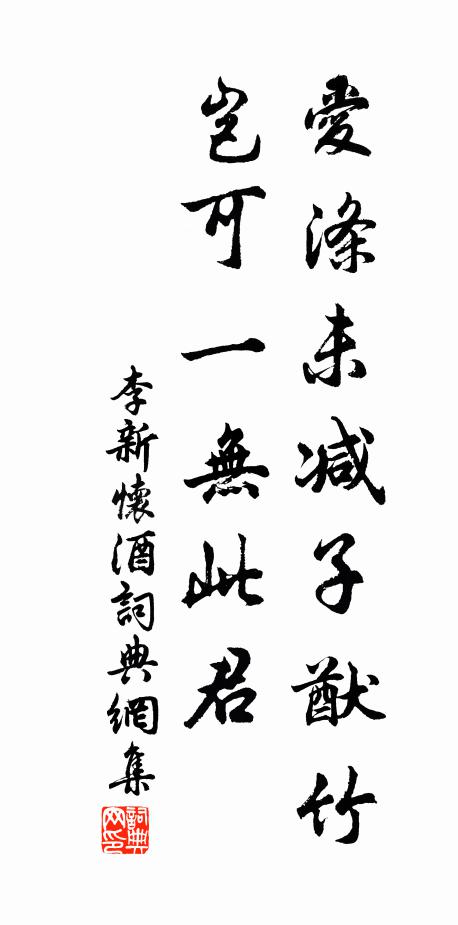 愛滌未減子猷竹
豈可一無此君
李新懷酒詞典網集
詞典网印